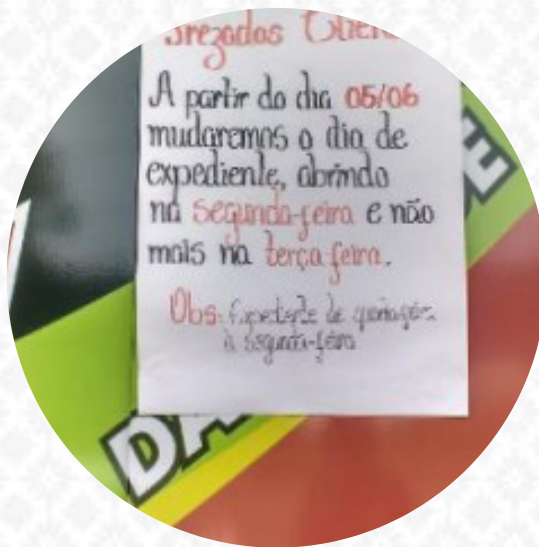 Prezados Clien
A partir do dia 05/06
mudaremos o dia de
expediente, abrindo
na segunda-feira e não
mais na terça feira.
Obs: Expediente de quarta-feira
à segunda-feira
DA
DE